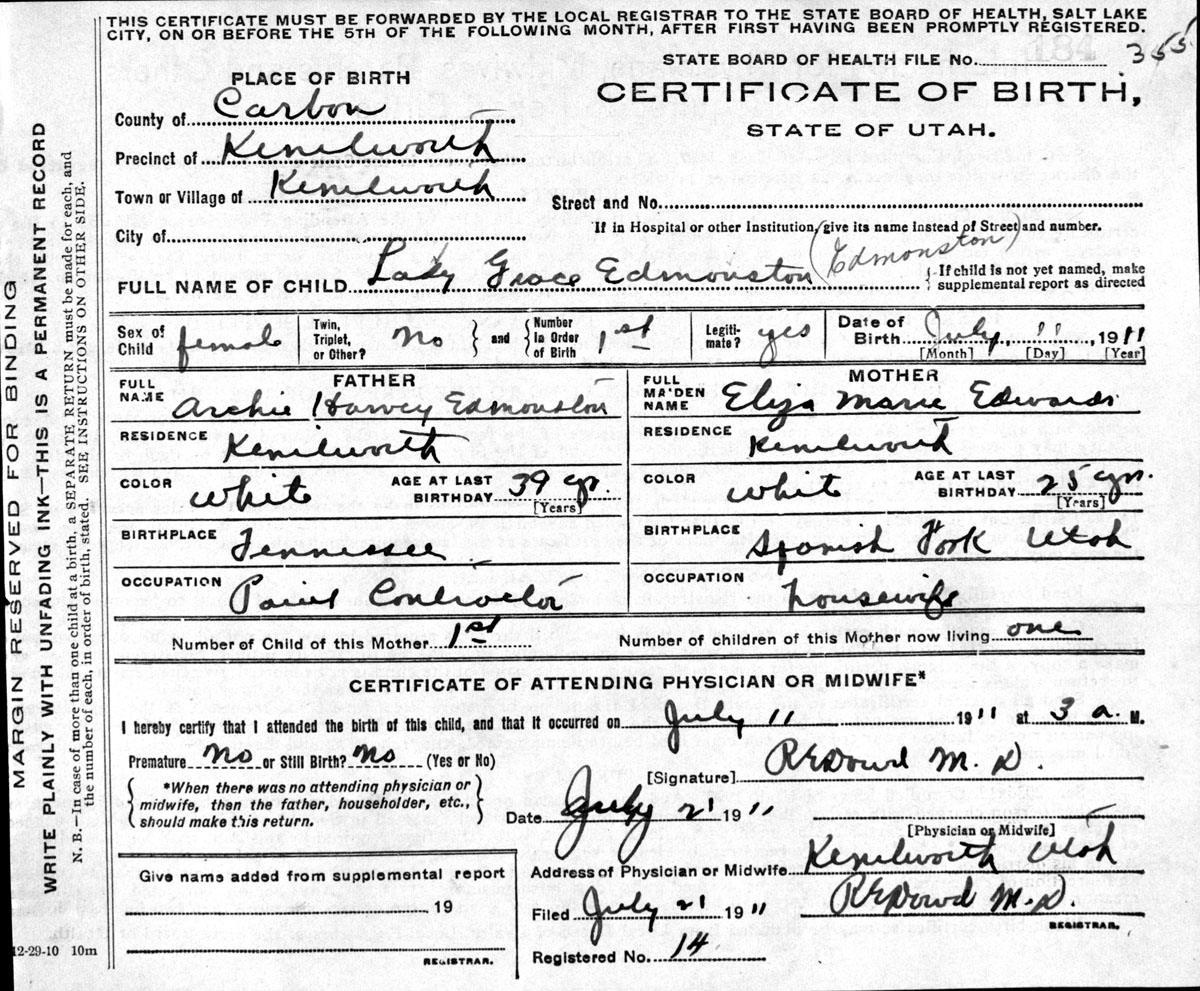 THIS CERTIFICATE MUST BE FORWARDED BY THE LOCAL REGISTRAR TO THE STATE BOARD OF HEALTH, SALT LAKE
CITY, ON OR BEFORE THE 5TH OF THE FOLLOWING MONTH, AFTER FIRST HAVING BEEN PROMPTLY REGISTERED.
STATE BOARD OF HEALTH FILE No. 355
CERTIFICATE OF BIRTH,
STATE OF UTAH.
PLACE OF BIRTH
County of Carbon
Precinct of Kenilworth
Town or Village of Kenilworth
Street and No.
City of
If in Hospital or other Institution, give its name instead of Street and number.
FULL NAME OF CHILD Lady Grace Edmonston (Edmonston)
If child is not yet named, make supplemental report as directed
Sex of Child female
Twin, Triplet, or Other? No and Number in Order of Birth 1st
Legitimate? yes
Date of Birth July 11 1911
[Month] [Day] [Year]
FATHER
FULL NAME Archie Harvey Edmonston
RESIDENCE Kenilworth
COLOR White AGE AT LAST BIRTHDAY 39 yr.
[Years]
BIRTHPLACE Tennessee
OCCUPATION Paint Contractor
MOTHER
FULL MAIDEN NAME Eliza Marie Edwards
RESIDENCE Kenilworth
COLOR White AGE AT LAST BIRTHDAY 25 yr.
[Years]
BIRTHPLACE Spanish Fork Utah
OCCUPATION housewife
Number of Child of this Mother 1st Number of children of this Mother now living one
CERTIFICATE OF ATTENDING PHYSICIAN OR MIDWIFE*
I hereby certify that I attended the birth of this child, and that it occurred on July 11 1911 at 3 a. M.
Premature No or Still Birth? No (Yes or No)
*When there was no attending physician or
midwife, then the father, householder, etc.,
should make this return.
[Signature] REDowd M. D.
Date July 21 1911
[Physician or Midwife]
Address of Physician or Midwife Kenilworth Utah
Filed July 21 1911 REDowd M.D.
REGISTRAR.
Registered No. 14
Give name added from supplemental report
19
REGISTRAR.
12-29-10 10m
MARGIN RESERVED FOR BINDING
WRITE PLAINLY WITH UNFADING INK—THIS IS A PERMANENT RECORD
N. B.—In case of more than one child at a birth, a SEPARATE RETURN must be made for each, and
the number of each, in order of birth, stated. SEE INSTRUCTIONS ON OTHER SIDE.